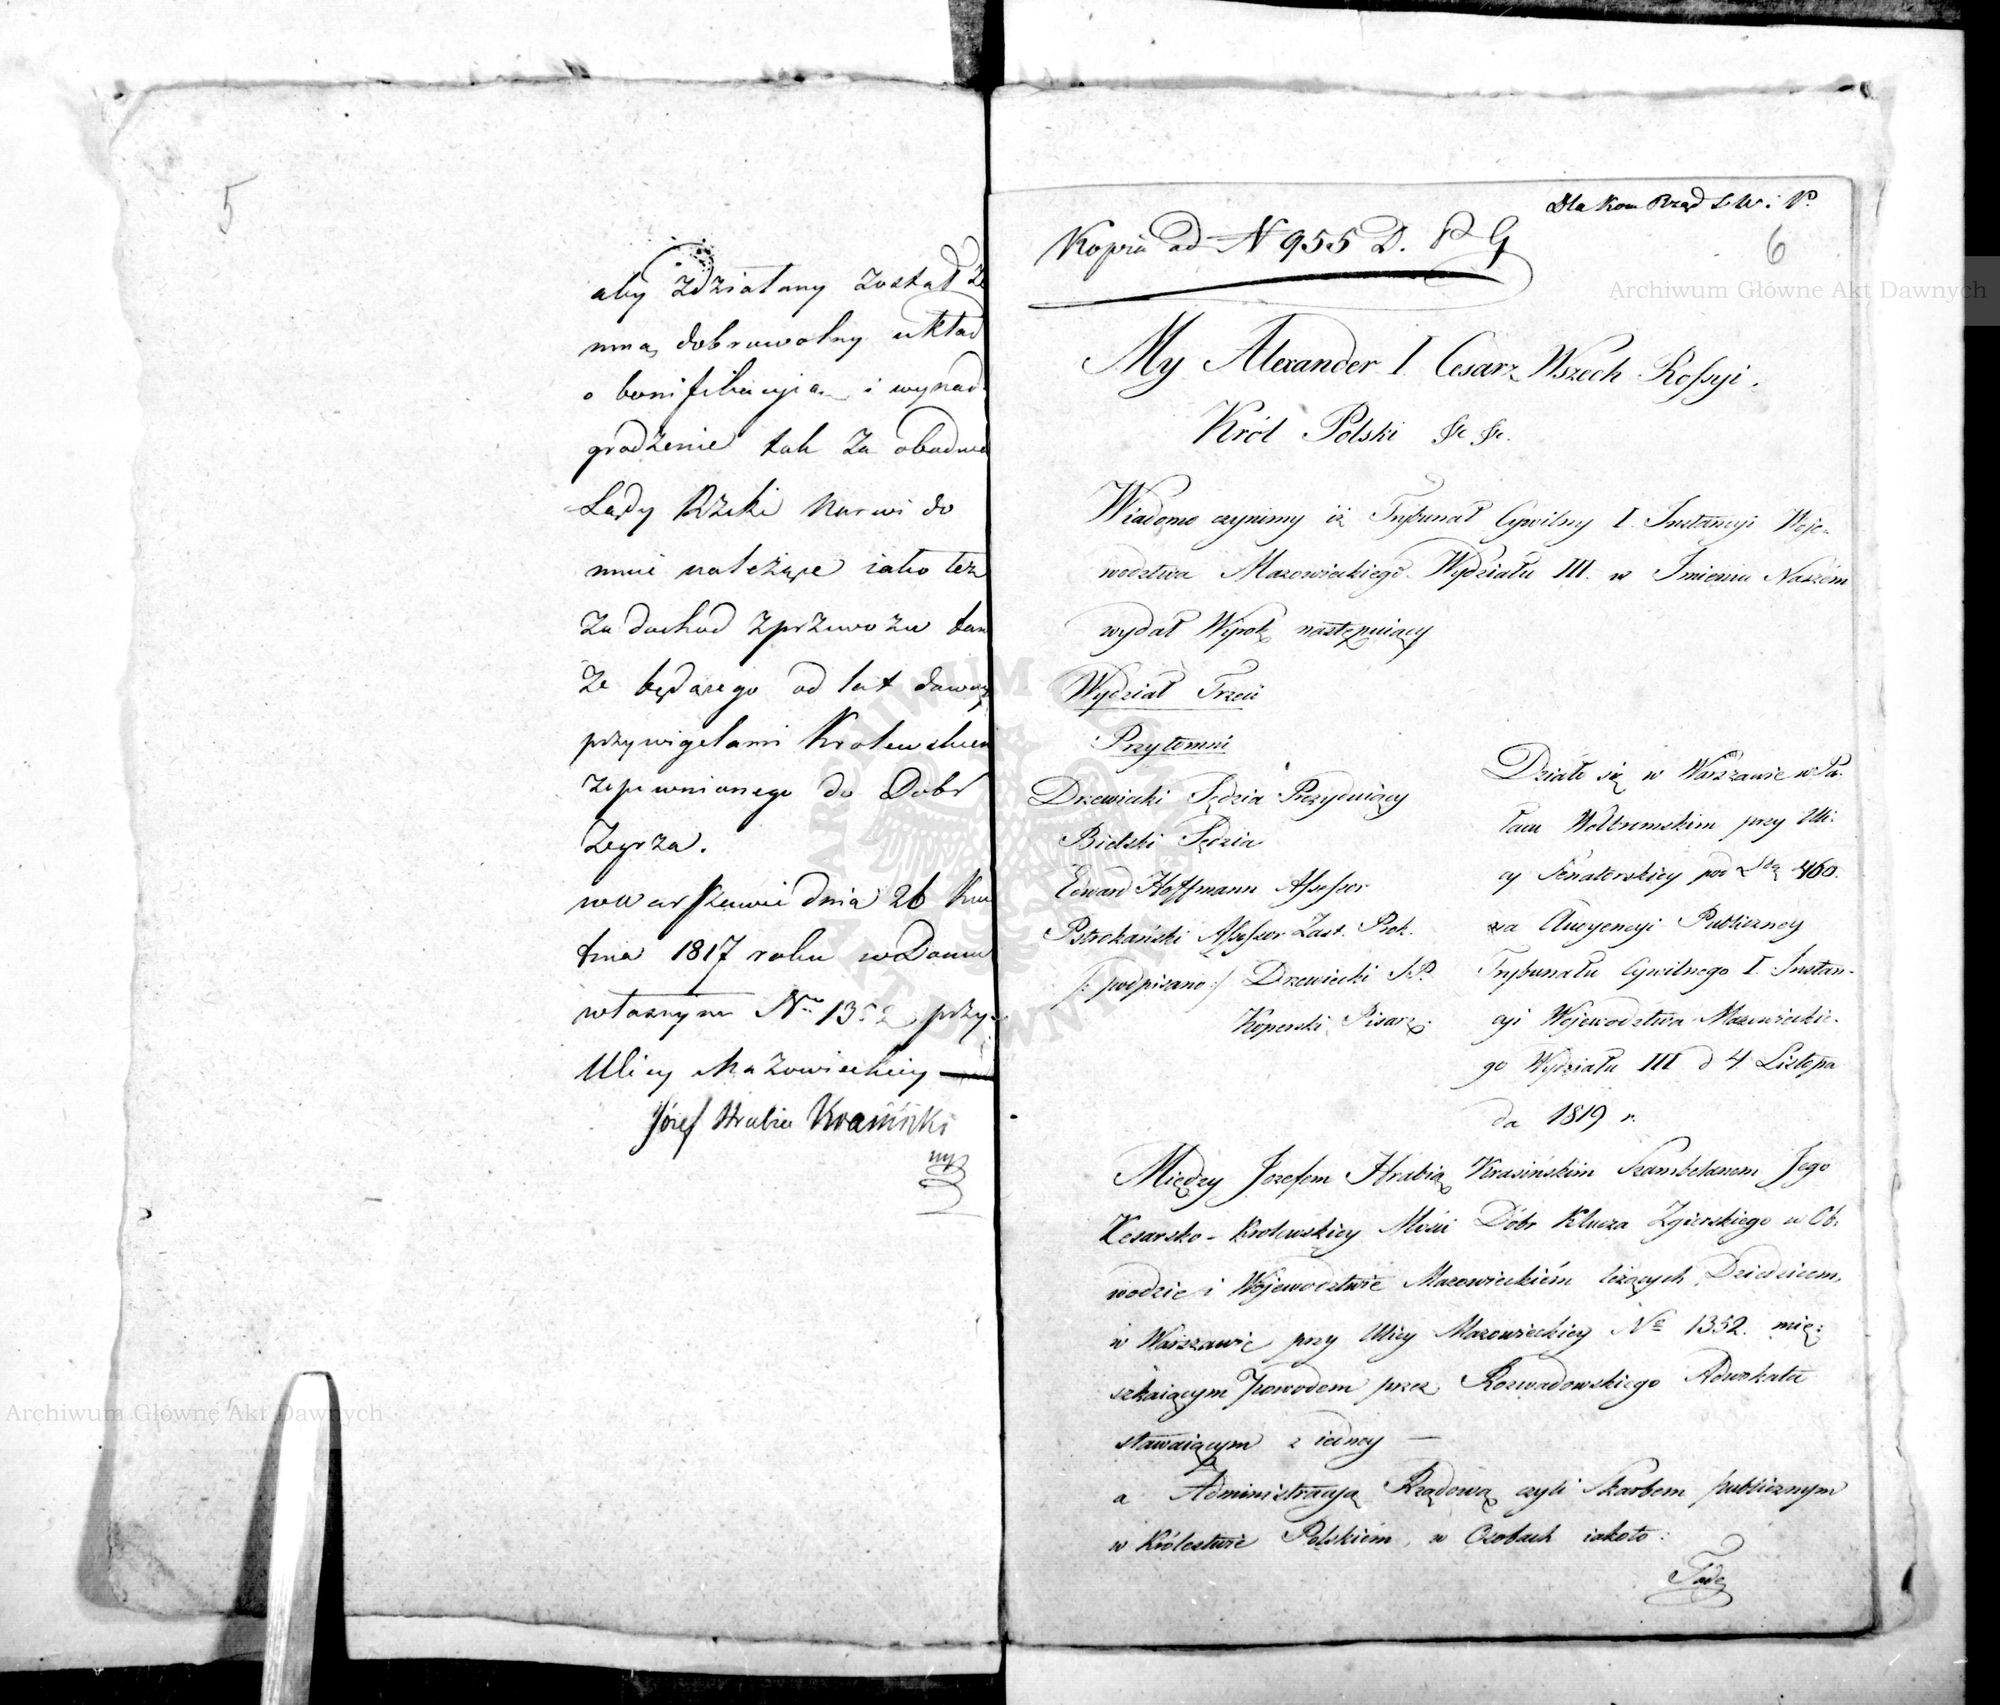 5
aby zdziałany został ze
mną dobrowolny układ
o bonifikacyią i wynad-
grodzenie tak za obadwa
Lądy Rzeki Narwi do
mnie należące iako też
za dochod z przewozu tam
że będącego od lat dawnych
przywigelami Krolewskiemi
zapewnionego do Dobr
Zegrza.
w Warszawie dnia 26 Kwi
tnia 1817 roku w Domu
własnym No 1352 przy
Ulicy Mazowieckiey —
Józef Hrabia Krasiński
mp
Dla Kom Rząd S. W. i P.
Kopia ad N 955 D. P G
6
My Alexander I Cesarz Wszech Rossyi.
Król Polski &c &c.
Wiadomo czynimy iż Trybunał Cywilny I. Instancyi Woje-
wodztwa Mazowieckiego Wydziału III. w Imieniu Naszém
wydał Wyrok następuiący
Wydział Trzeci
Przytomni
Drzewiecki Sędzia Prezyduiący
Bielski Sędzia
Edward Hoffmann Assessor
Pstrokański Assessor Zast. Prok.
/: podpisano :/ Drzewiecki S.P.
Koperski Pisarz.
Działo się w Warszawie w Pa-
łacu Wolbromskim przy Uli-
cy Senatorskiey pod Lbą 460.
na Audyencyi Publiczney
Trybunału Cywilnego I. Instan-
cyi Wojewodztwa Mazowieckie-
go Wydziału III d 4. Listopa
da 1819 r.
Między Jozefem Hrabią Krasińskim Szambelanem Jego
Cesarsko-Krolewskiey Mości Dóbr Klucza Zgierskiego w Ob-
wodzie i Wojewodztwie Mazowieckiém leżących Dziedzicem,
w Warszawie przy Ulicy Mazowieckiey No 1352. mie-
szkaiącym Powodem przez Rozwadowskiego Adwokata
stawaiącym z iedney —
a Administracyą Rządową czyli Skarbem publicznym
w Królestwie Polskiém, w Osobach iakoto:
Tade
Archiwum Główne Akt Dawnych
Archiwum Główne Akt Dawnych
ARCHIWUM GŁÓWNE AKT DAWNYCH